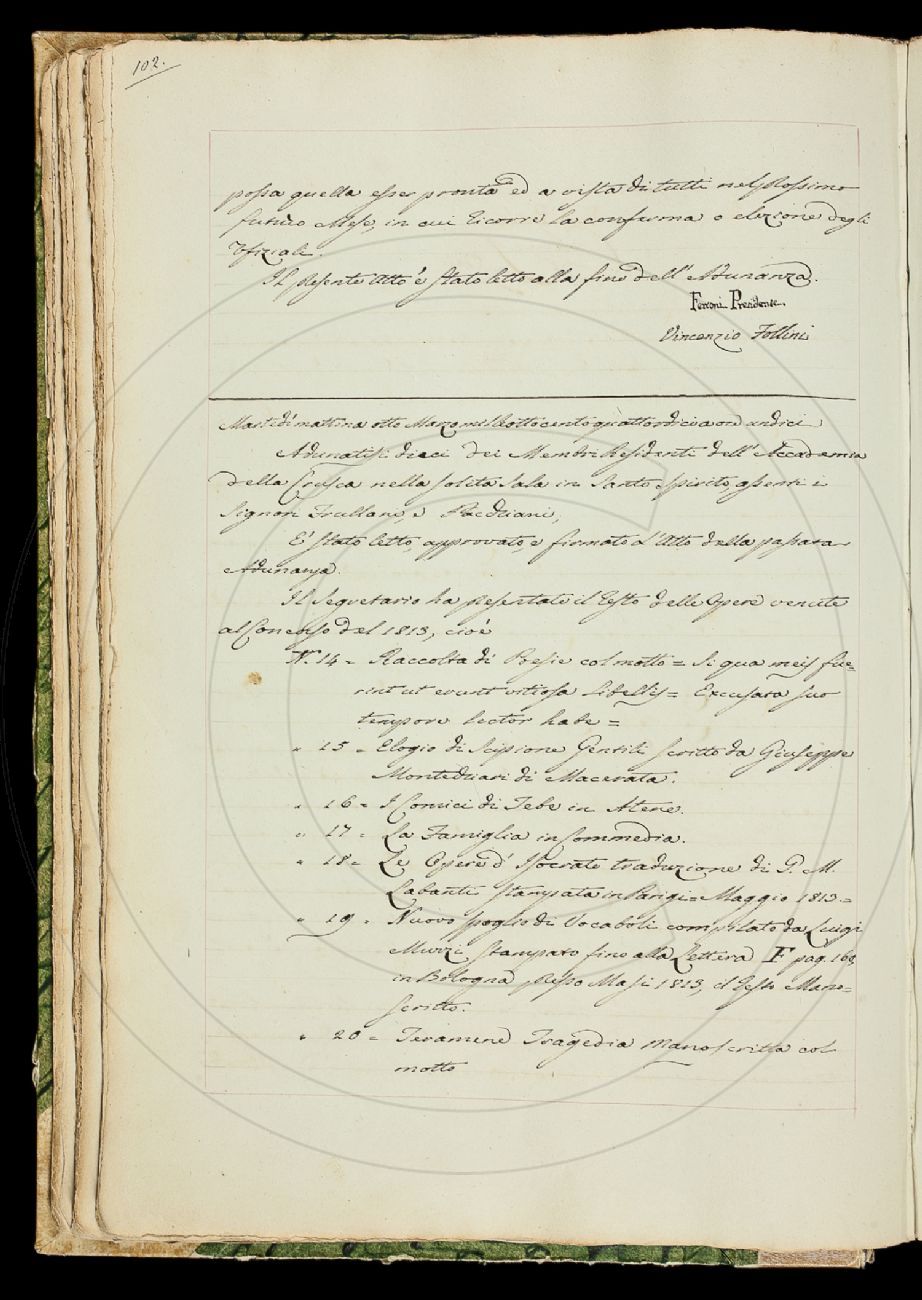 102.
possa quella esser pronta ed a vista di tutti nel prossimo
futuro Mese, in cui ricorre la conferma o elezione degli
Ufiziali.
Il presente Atto è stato letto alla fine dell' Adunanza.
Ferroni Presidente.
Vincenzio Follini
Martedì mattina otto Marzo mille ottocento quattordici a ore undici
Adunatisi dieci dei Membri Residenti dell' Accademia
della Crusca nella solita Sala in Santo Spirito, assenti i
Signori Zrullani, e
È stato letto, approvato, e firmato l'Atto della passata
Adunanza.
Il Segretario ha presentato il resto delle Opere venute
al Concorso del 1813, cioè
N.° 14 = Raccolta di Poesie col motto = Si qua meis fue=
rint ut erunt vitiosa libellis = Excusata suo
tempore lector habe =
" 15 = Elogio di Scipione Gentili scritto da Giuseppe
di Macerata.
" 16 = I Comici di Tebe in Atene.
" 17 = La Famiglia in Commedia.
" 18 = Le Opere d' Isocrate traduzione di G. M.
Labanti stampata in Parigi = Maggio 1813 =
" 19 = Nuovo spoglio di Vocaboli compilato da Luigi
Muzzi stampato fino alla Lettera F pag. 168,
in Bologna presso Masi 1813, il resto Mano=
scritto.
" 20 = Teramene Tragedia manoscritta col
motto